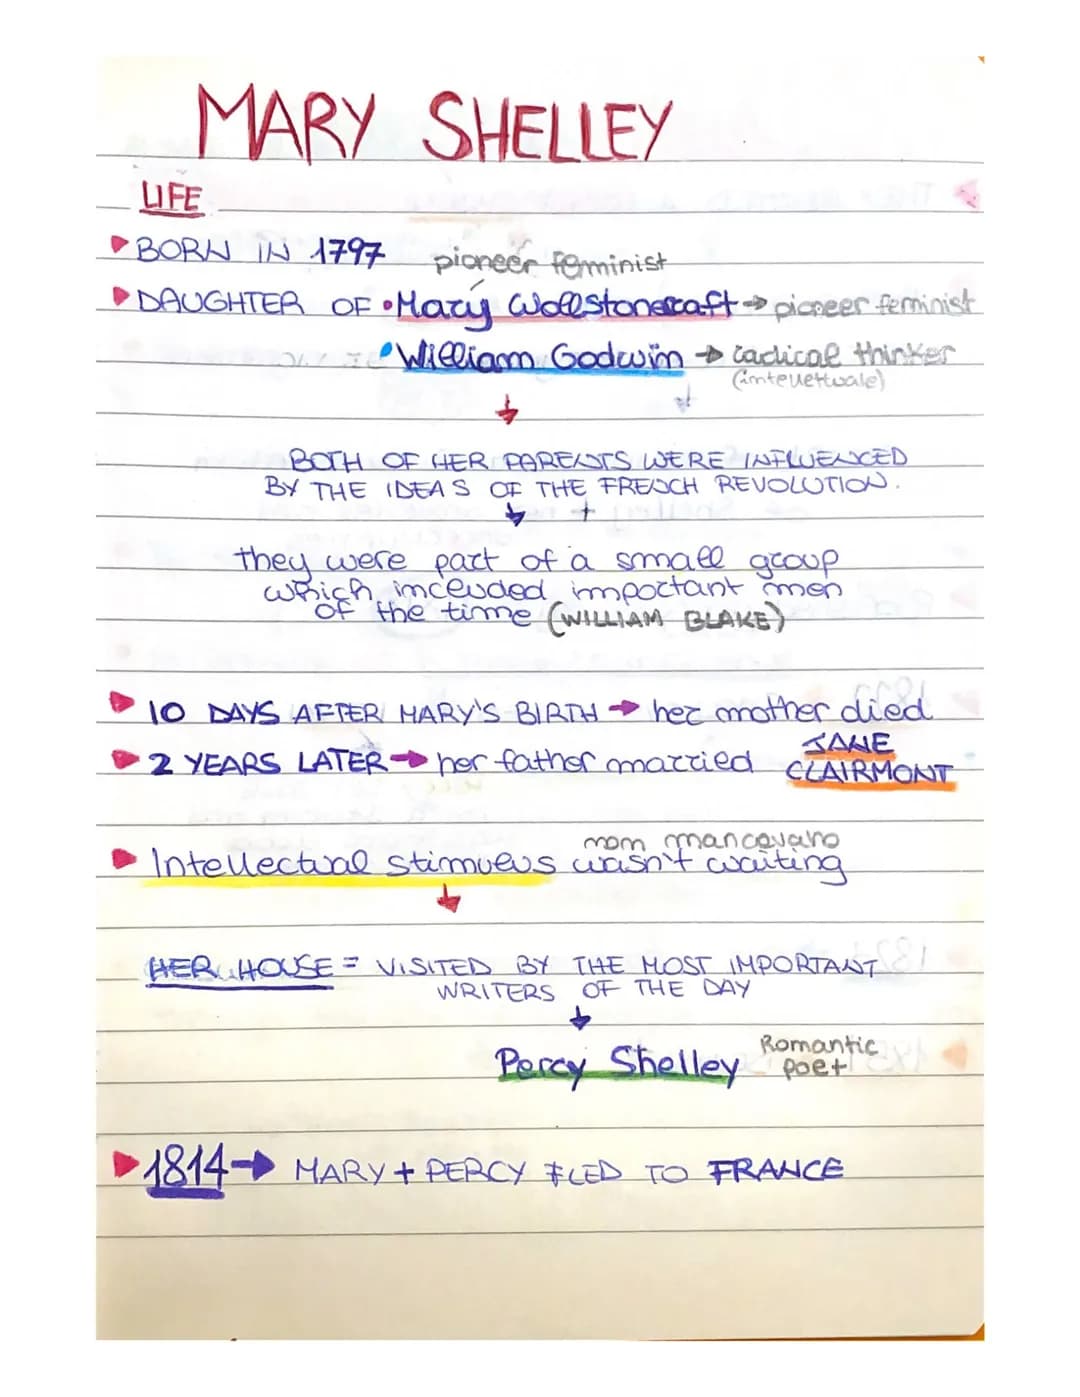 MARY SHELLEY
LIFE
BORN IN 1797
pioneer feminist
DAUGHTER OF • Mary Wollstonecraft → pioneer feminist
• William Godwin → radical thinker
(intellettuale)
BOTH OF HER PARENTS WERE INFLUENCED
BY THE IDEAS OF THE FRENCH REVOLUTION.
+
they were part of a small group
which included important men
of the time (WILLIAM BLAKE)
10 DAYS AFTER MARY'S BIRTH → her mother died
2 YEARS LATER → her father married JANE
CLAIRMONT
non mancavano
Intellectual stimulus wasn't waiting
HER HOUSE = VISITED BY THE MOST IMPORTANT
WRITERS OF THE DAY
Percy Shelley Romantic
poet
1814 → MARY + PERCY FLED TO FRANCE